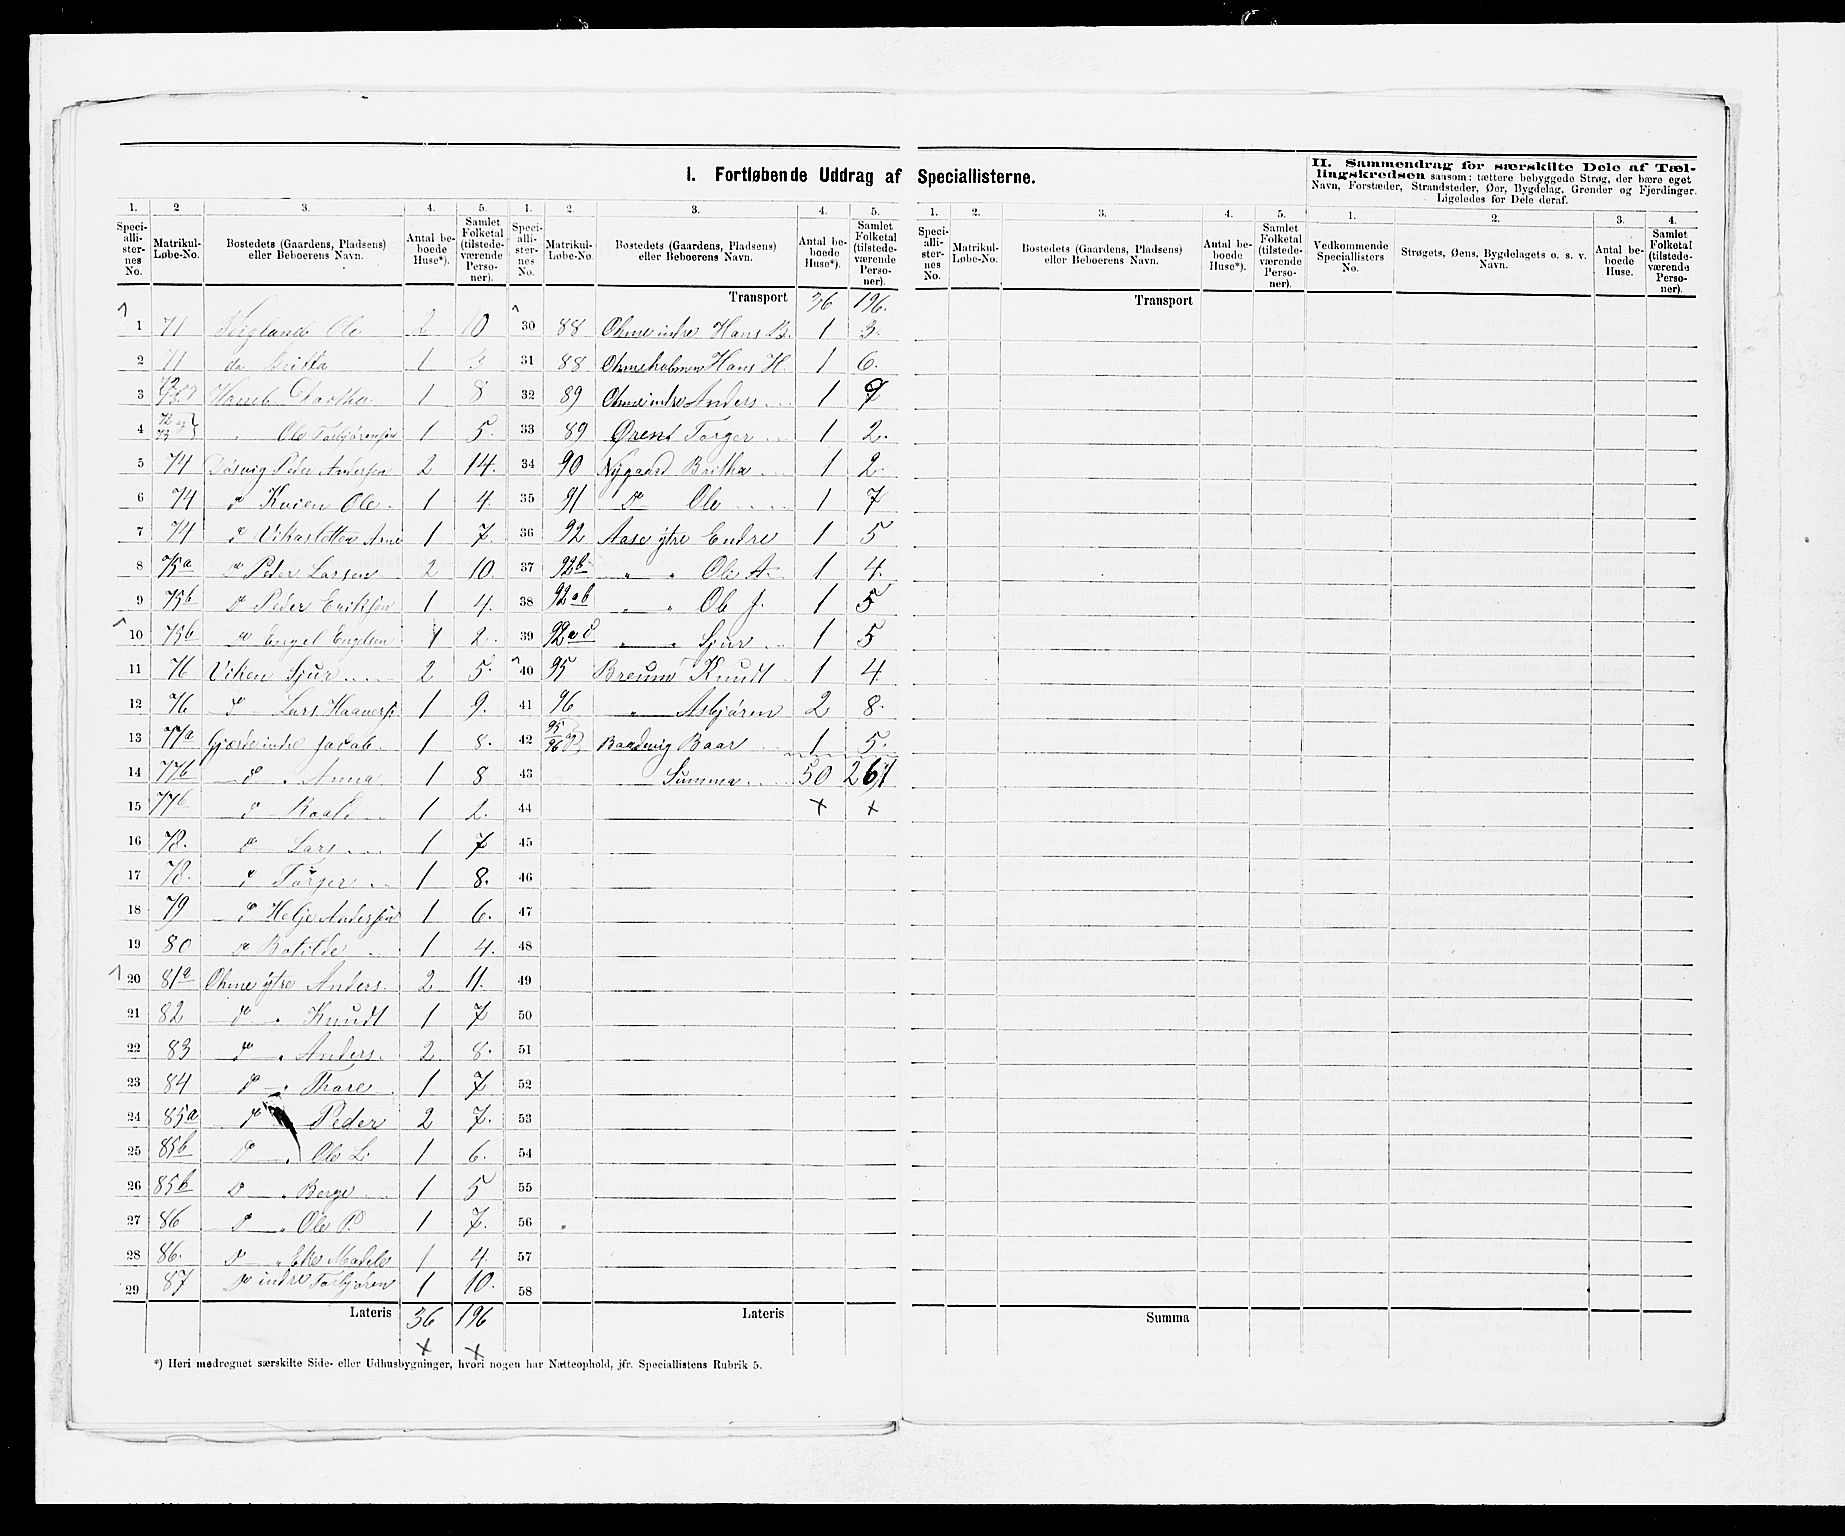 I. Fortløbende Uddrag af Speciallisterne.
II. Sammendrag for særskilte Dele af Tællingskredsen saasom: tættere bebyggede Strøg, der bære eget
Navn, Forstæder, Strandsteder, Øer, Bygdelag, Grender og Fjerdinger.
Ligeledes for Dele deraf.
1. 2 3. 4. 5. 1. 2. 3. 4. 5. 1. 2. 3. 4. 5. 1. 2. 3. 4.
Speciallisternes No. Matrikul-Løbe-No. Bostedets (Gaardens, Pladsens) eller Beboerens Navn. Antal beboede Huse*). Samlet Folketal (tilstedeværende Personer).
Speciallisternes No. Matrikul-Løbe-No. Bostedets (Gaardens, Pladsens) eller Beboerens Navn. Antal beboede Huse*). Samlet Folketal (tilstedeværende Personer).
Speciallisternes No. Matrikul-Løbe-No. Bostedets (Gaardens, Pladsens) eller Beboerens Navn. Antal beboede Huse*). Samlet Folketal (tilstedeværende Personer).
Vedkommende Speciallisters No. Strøgets, Øens, Bygdelagets o. s. v. Navn. Antal beboede Huse. Samlet Folketal (tilstedeværende Personer).
1 71 Ole 2 10
2 71 do Britta 1 3
3 1 8
4 72 og 73 " Ole Torbjörensen 1 5.
5 74 Peder Andersen 2 14.
6 74 do Kvien Ole 1 4.
7 74 do Vikasletten Arne 1 7.
8 75a do Peder Larsen 2 10.
9 75b do Peder Eriksen 1 4.
10 75b do Engel Engelsen 1 2.
11 76 Viken Sjur 2 5.
12 76 do Lars 1 9.
13 77a Gjerde indre Jacob 1 8.
14 77b do " Anna 1 8
15 77b do Roald 1 2.
16 78. do Lars 1 7
17 78. do Torger 1 8.
18 79 do Helje Andersen 1 6.
19 80 do Botilde 1 4.
20 81a Ohme ytre Anders 2 11.
21 82 do " Knudt 1 7
22 83 do " Anders. 2 8.
23 84 do " Thore 1 7
24 85a do Peder 2 7.
25 85b do " Ole L. 1 6.
26 85b do " Berge 1 5
27 86 do " Ole P. 1 7.
28 86. do " 1 4.
29 87 do indre Torbjören 1 10.
Lateris 36 196
Transport 36 196.
30 88 Ohme indre Hans B. 1 3.
31 88 Ohmeholmen Hans H. 1 6.
32 89 Ohme indre Anders 1 9
33 89 Torger 1 2.
34 90 Nygaard Britha 1 2.
35 91 do Ole 1 7
36 92 Aase ytre Endre 1 5
37 92b " " Ole A. 1 4.
38 92ab " " Ole J. 1 5
39 " " Sjur 1 5
40 95 Knudt 1 4
41 96 " Asbjören 2 8.
42 95 og 96 Baar 1 5.
43 Summa 50 261
44
45
46
47
48
49
50
51
52
53
54
55
56
57
58
Lateris
Transport
Summa
*) Heri medregnet særskilte Side- eller Udhusbygninger, hvori nogen har Natteophold, jfr. Speciallistens Rubrik 5.